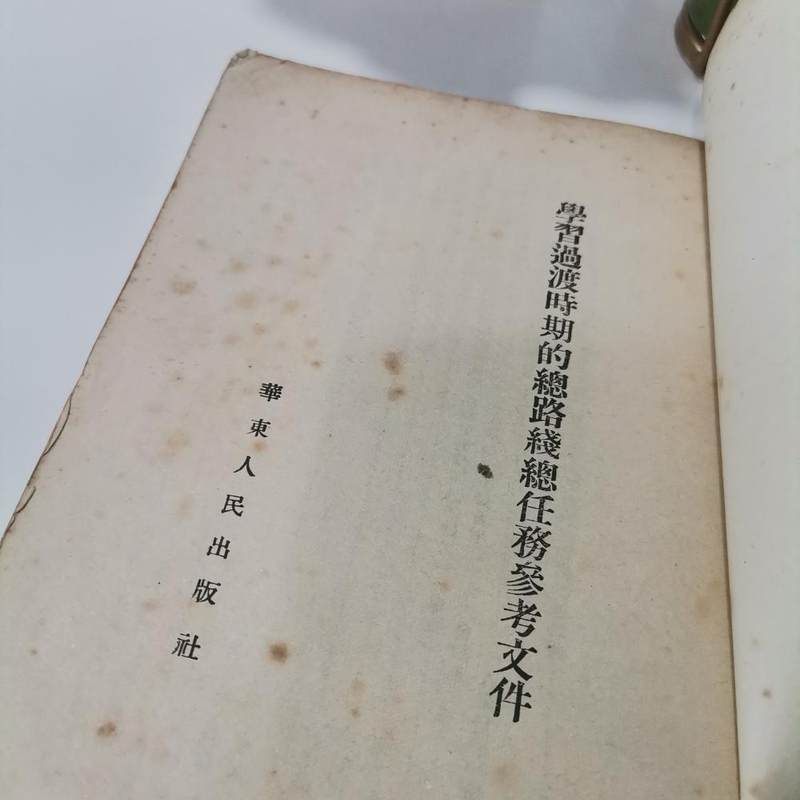 學習過渡時期的總路綫總任務參考文件
華東人民出版社